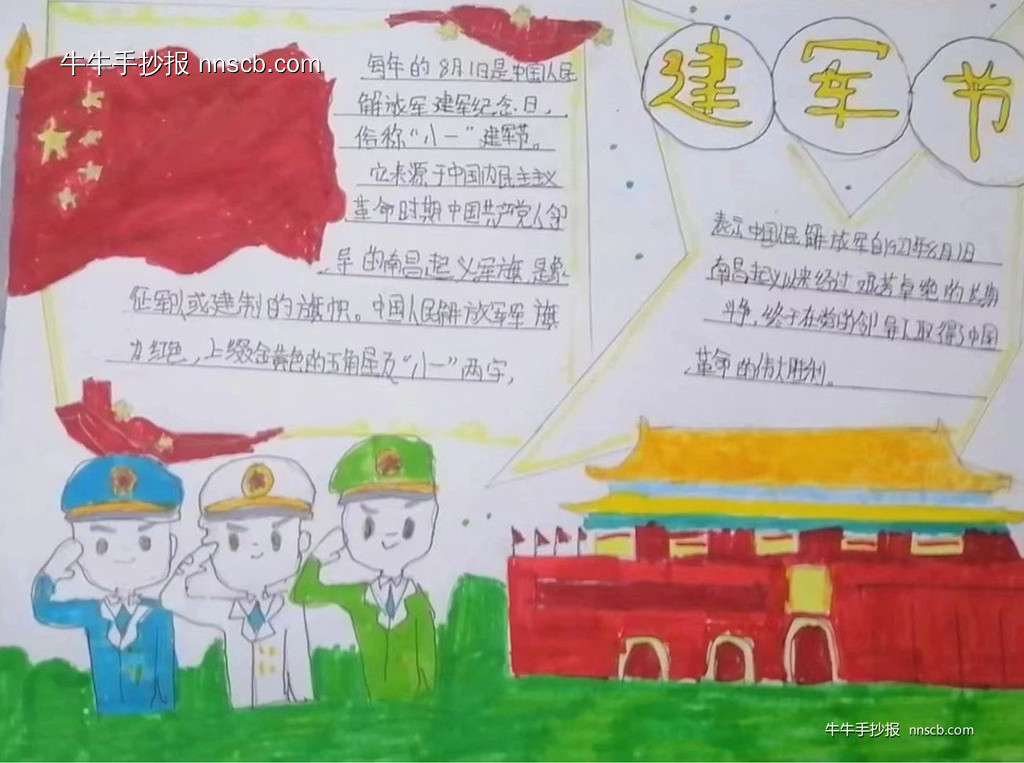 牛牛手抄报 nnscb.com
建军节
每年的8月1日是中国人民
解放军建军纪念日,
俗称“八一”建军节。
它来源于中国内民主主义
革命时期中国共产党人领
导的南昌起义军旗,是象
征军队或建制的旗帜。中国人民解放军军旗
为红色,上缀金黄色的五角星及“八一”两字,
表示中国人民解放军自1927年8月1日
南昌起义以来经过艰苦卓绝的长期
斗争,终于在党的领导下取得了中国
革命的伟大胜利。
牛牛手抄报 nnscb.com